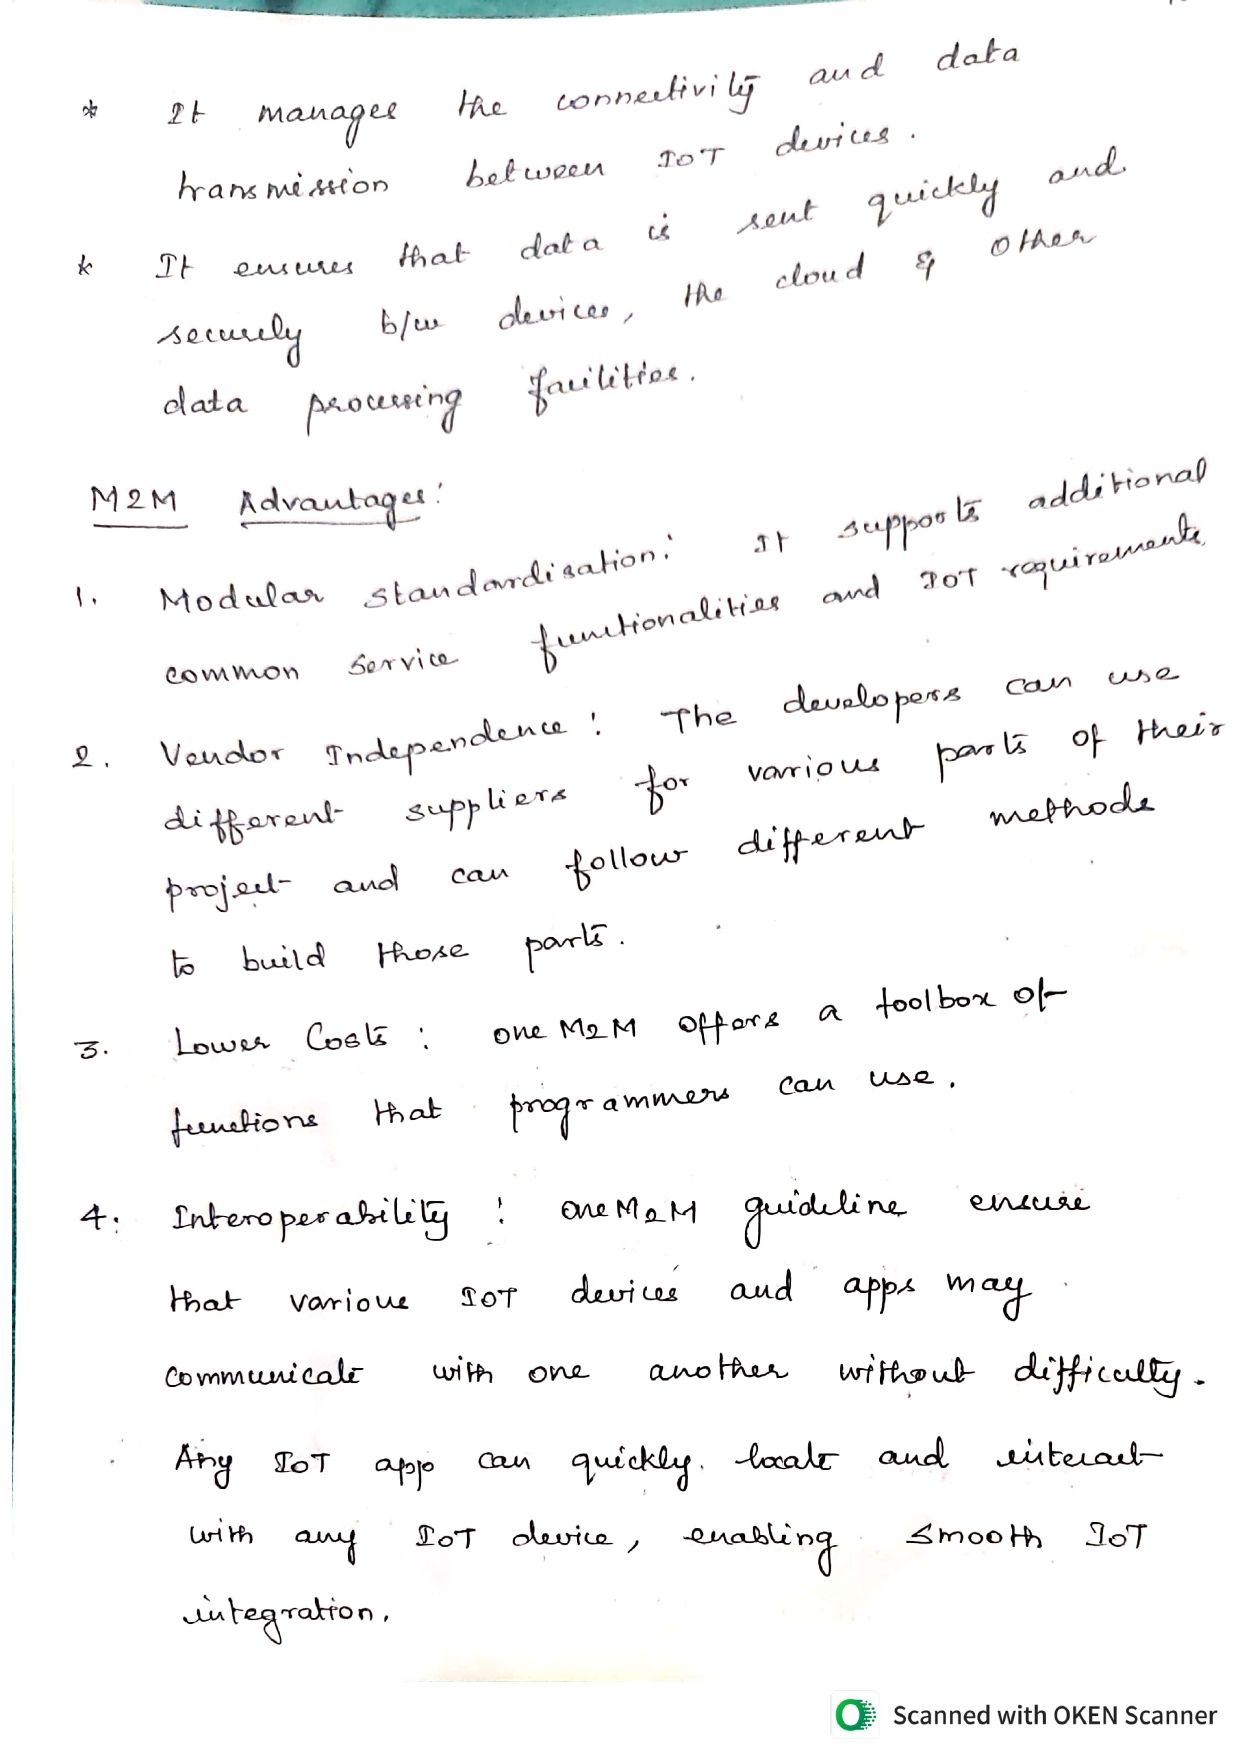 * It manages the connectivity and data
transmission between IOT devices.
* It ensures that data is sent quickly and
securely b/w devices, the cloud & other
data processing facilities.
M2M Advantages:
1. Modular standardisation: It supports additional
common service functionalities and IOT requirements.
2. Vendor Independence: The developers can use
different suppliers for various parts of their
project and can follow different methods
to build those parts.
3. Lower Costs: one M2M offers a toolbox of
functions that programmers can use.
4. Interoperability: one M2M guideline ensure
that various IOT devices and apps may
communicate with one another without difficulty.
Any IOT app can quickly. locate and interact
with any IOT device, enabling smooth IOT
integration.
Scanned with OKEN Scanner